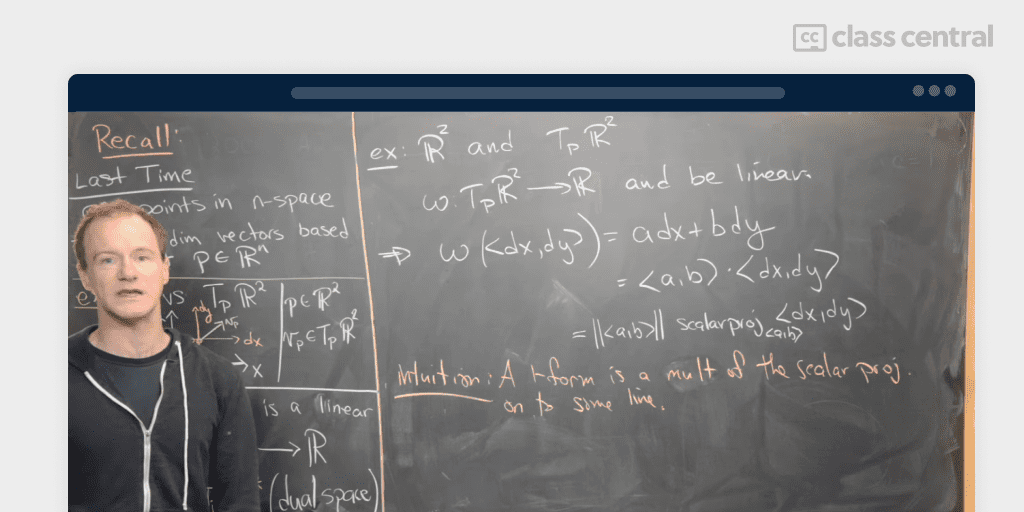 class central
Recall:
Last Time
points in n-space
dim vectors based
p ∈ ℝⁿ
vs Tₚℝ² | p ∈ ℝ²
dy
vₚ
dx
vₚ ∈ Tₚℝ²
x
is a linear
→ ℝ
(dual space)
ex: ℝ² and Tₚℝ²
ω: Tₚℝ² → ℝ and be linear.
⇒ ω(<dx,dy>) = adx + bdy
= <a,b> · <dx,dy>
= ||<a,b>|| scalarproj_<a,b> <dx,dy>
Intuition: A 1-form is a mult of the scalar proj.
on to some line.